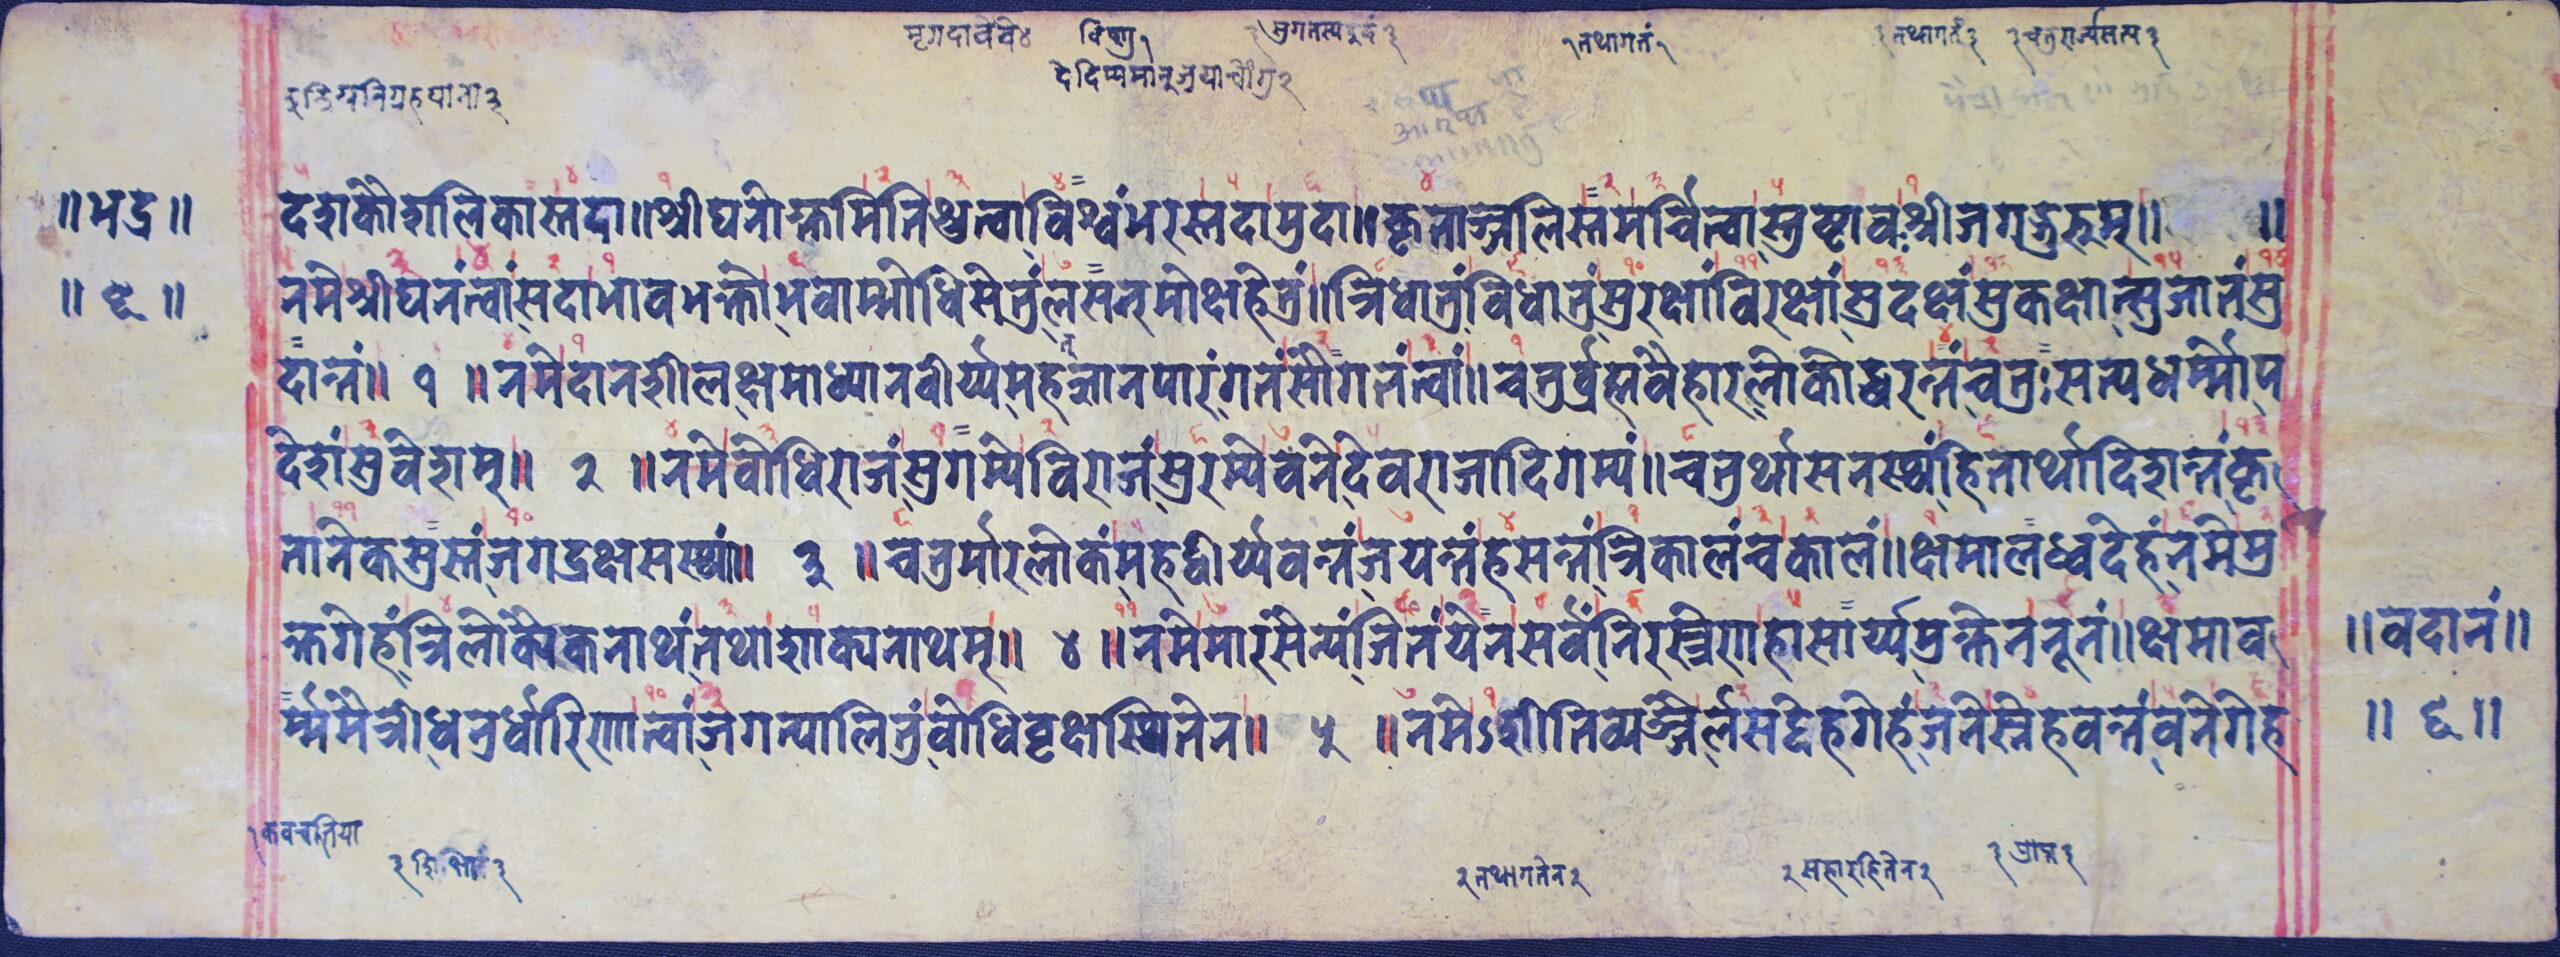 मृगदावेवे४
विष्णु१
२तथागतं१
२तथागतं२
देदिप्यमान्
॥भद्र॥ दशकौशलिकास्तदा॥श्रीघनोक्तमितिश्रुत्वाविश्वंभरस्तदामुदा॥कृताञ्जलिस्तमर्चित्वास्तुष्टावश्रीजगद्गुरुम्॥ ॥
॥ ९ ॥ नमेश्रीघनंत्वांसदाभावभक्तोभवाम्भोधिसेतुंलसन्मोक्षहेतुं॥त्रिधातुंविधातुंसुरक्षांविरक्षांसुदक्षंसुकक्षान्सुजातंसु
दान्तं॥ १ ॥नमेदानशीलक्षमाध्यानवीर्य्यमहज्ञानपारंगतंसौगतंत्वां॥चतुर्ब्रह्मवैहारलोकोद्धरन्तंचतुःसत्यधर्म्मोप
देशंसुवेशम्॥ २ ॥नमेबोधिराजंसुगम्येविराजंसुरम्येवनेदेवराजादिगम्यं॥चतुर्थासनस्थंहितार्थादिशन्तंकृ
तानेकसुस्तंजगद्रक्षसस्थां॥ ३ ॥चतुर्मारलोकंमहद्वीर्य्यवन्तंजयन्तंहसन्तंत्रिकालंचकालं॥क्षमालब्धदेहंनमेमु
क्तगेहंत्रिलोक्यैकनाथंतथाशाक्यनाथम्॥ ४ ॥नमेमारसैन्यंजितंयेनसर्वंनिरस्त्रेणहासार्य्यमुक्तेननूनं॥क्षमाव
॥वदानं॥
र्म्ममैत्रीधनुर्धारिणात्वांजगत्पालितुंबोधिवृक्षस्थितेन॥ ५ ॥नमेऽशीतिव्यञ्जैर्लसद्देहगेहंजनेस्नेहवन्तंवनेगेह
॥ ६ ॥
२तथागतेन२